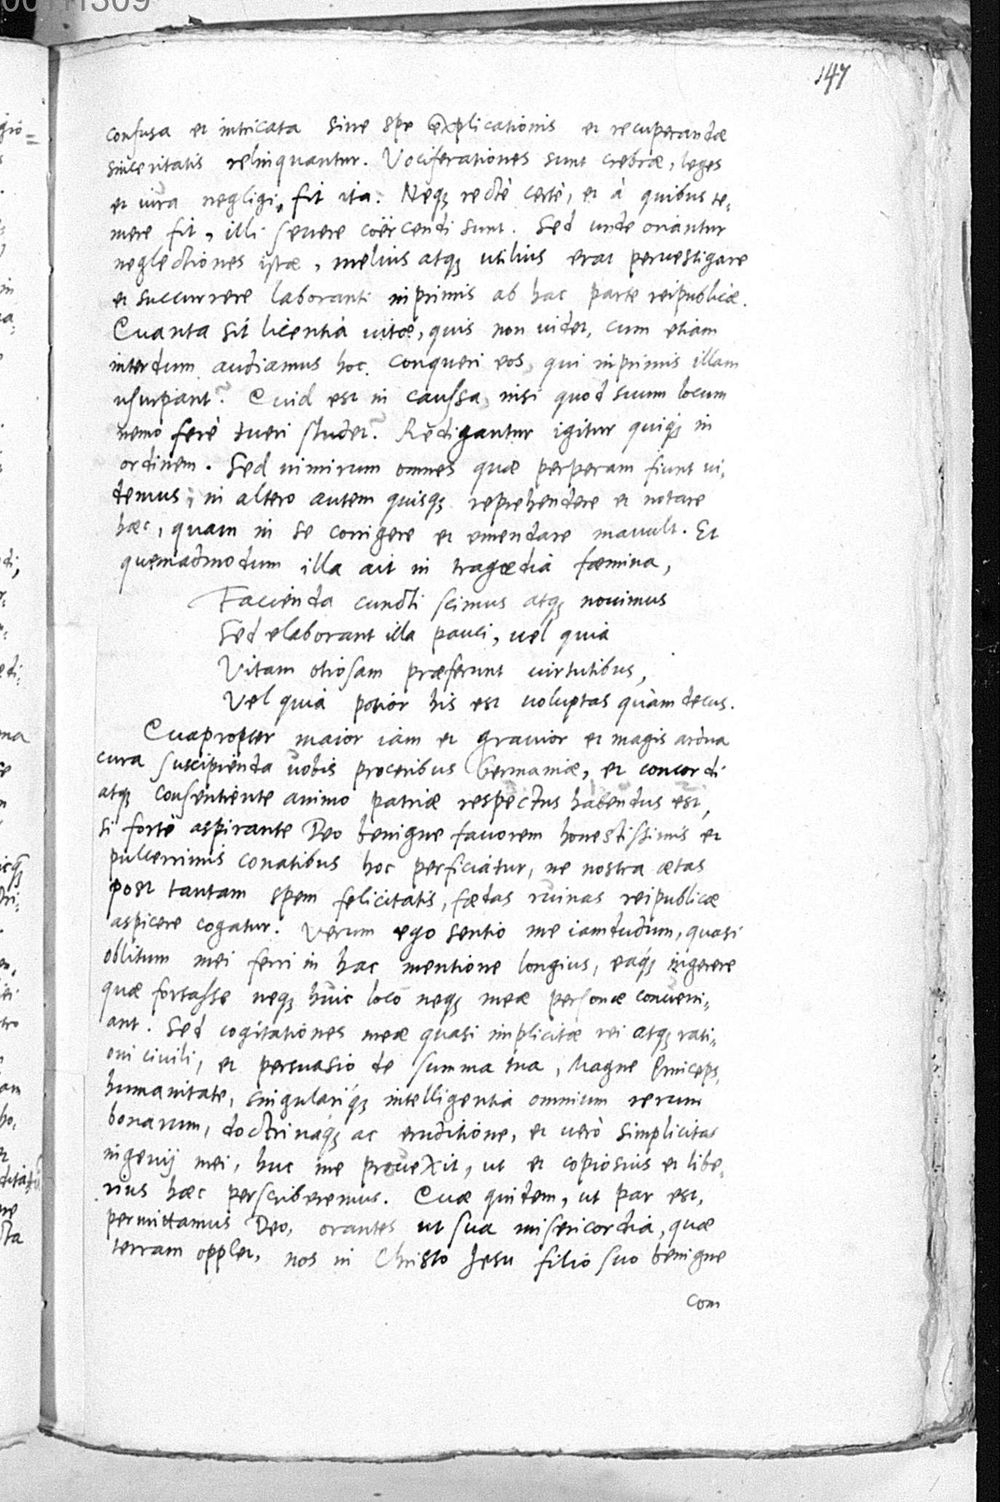 147
confusa et intricata sine spe explicationis et recuperandæ
sinceritatis relinquantur. Vociferationes sunt crebræ, leges
et iura negligi, fit ita. Neq; rectè certè, et à quibus te,
mere fit, illi seuere coërcendi sunt. Sed unde oriantur
neglectiones istæ, melius atq; utilius erat peruestigare
et succurrere laboranti inprimis ab hac parte reipublicæ.
Cuanta sit licentia uitæ, quis non uidet, cum etiam
interdum audiamus hoc conqueri eos, qui inprimis illam
usurpant? Cuid est in caussa, nisi quod suum locum
nemo ferè tueri studet? Redigantur igitur quiq; in
ordinem. Sed nimirum omnes quæ perperam fiunt ui,
demus, in altero autem quisq; reprehendere et notare
hæc, quam in se corrigere et emendare mauult. Et
quemadmodum illa ait in tragœdia fœmina,
Facienda cuncti scimus atq; nouimus
Sed elaborant illa pauci, uel quia
Vitam otiosam præferunt uirtutibus,
Vel quia potior his est uoluptas quàm decus.
Cuapropter maior iam et grauior et magis ardua
cura suscipienda uobis proceribus Germaniæ, et concordi
atq; consentiente animo patriæ respectus habendus est,
si fortè aspirante Deo benigne fauorem honestissimis et
pulcerrimis conatibus hoc perficiatur, ne nostra ætas
post tantam spem felicitatis, fœdas ruinas reipublicæ
aspicere cogatur. Verum ego sentio me iamdudum, quasi
oblitum mei ferri in hac mentione longius, eaq; ingerere
quæ fortasse neq; huic loco neq; meæ personæ conueni,
ant. Sed cogitationes meæ quasi implicitæ rei atq; rati,
oni ciuili, et persuasio de summa tua, Magne Princeps,
humanitate, singulariq; intelligentia omnium rerum
bonarum, doctrinaq; ac eruditione, et uerò simplicitas
ingenij mei, huc me prouexit, ut et copiosius et libe,
rius hæc perscriberemus. Cuæ quidem, ut par est,
permittamus Deo, orantes ut sua misericordia, quæ
terram opplet, nos in Christo Jesu filio suo benigne
com